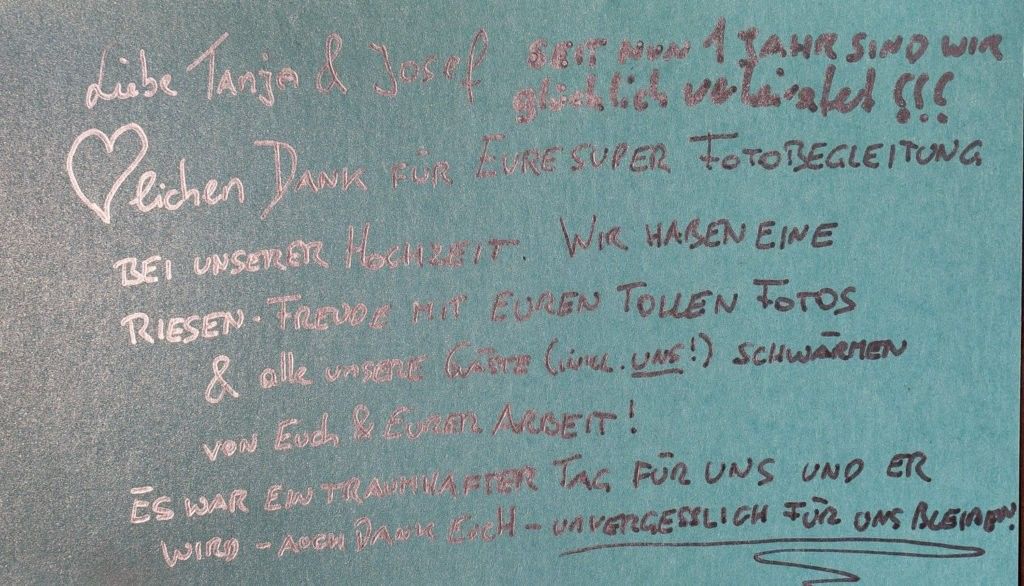 Liebe Tanja & Josef SEIT NUN 1 JAHR SIND WIR
glücklich verheiratet!!!
♡lichen DANK FÜR EURE SUPER FOTOBEGLEITUNG
BEI UNSERER HOCHZEIT. WIR HABEN EINE
RIESEN-FREUDE MIT EUREN TOLLEN FOTOS
& alle UNSERE GÄSTE (inkl. UNS!) SCHWÄRMEN
VON EUCH & EURER ARBEIT!
ES WAR EIN TRAUMHAFTER TAG FÜR UNS UND ER
WIRD - AUCH DANK EUCH - UNVERGESSLICH FÜR UNS BLEIBEN!